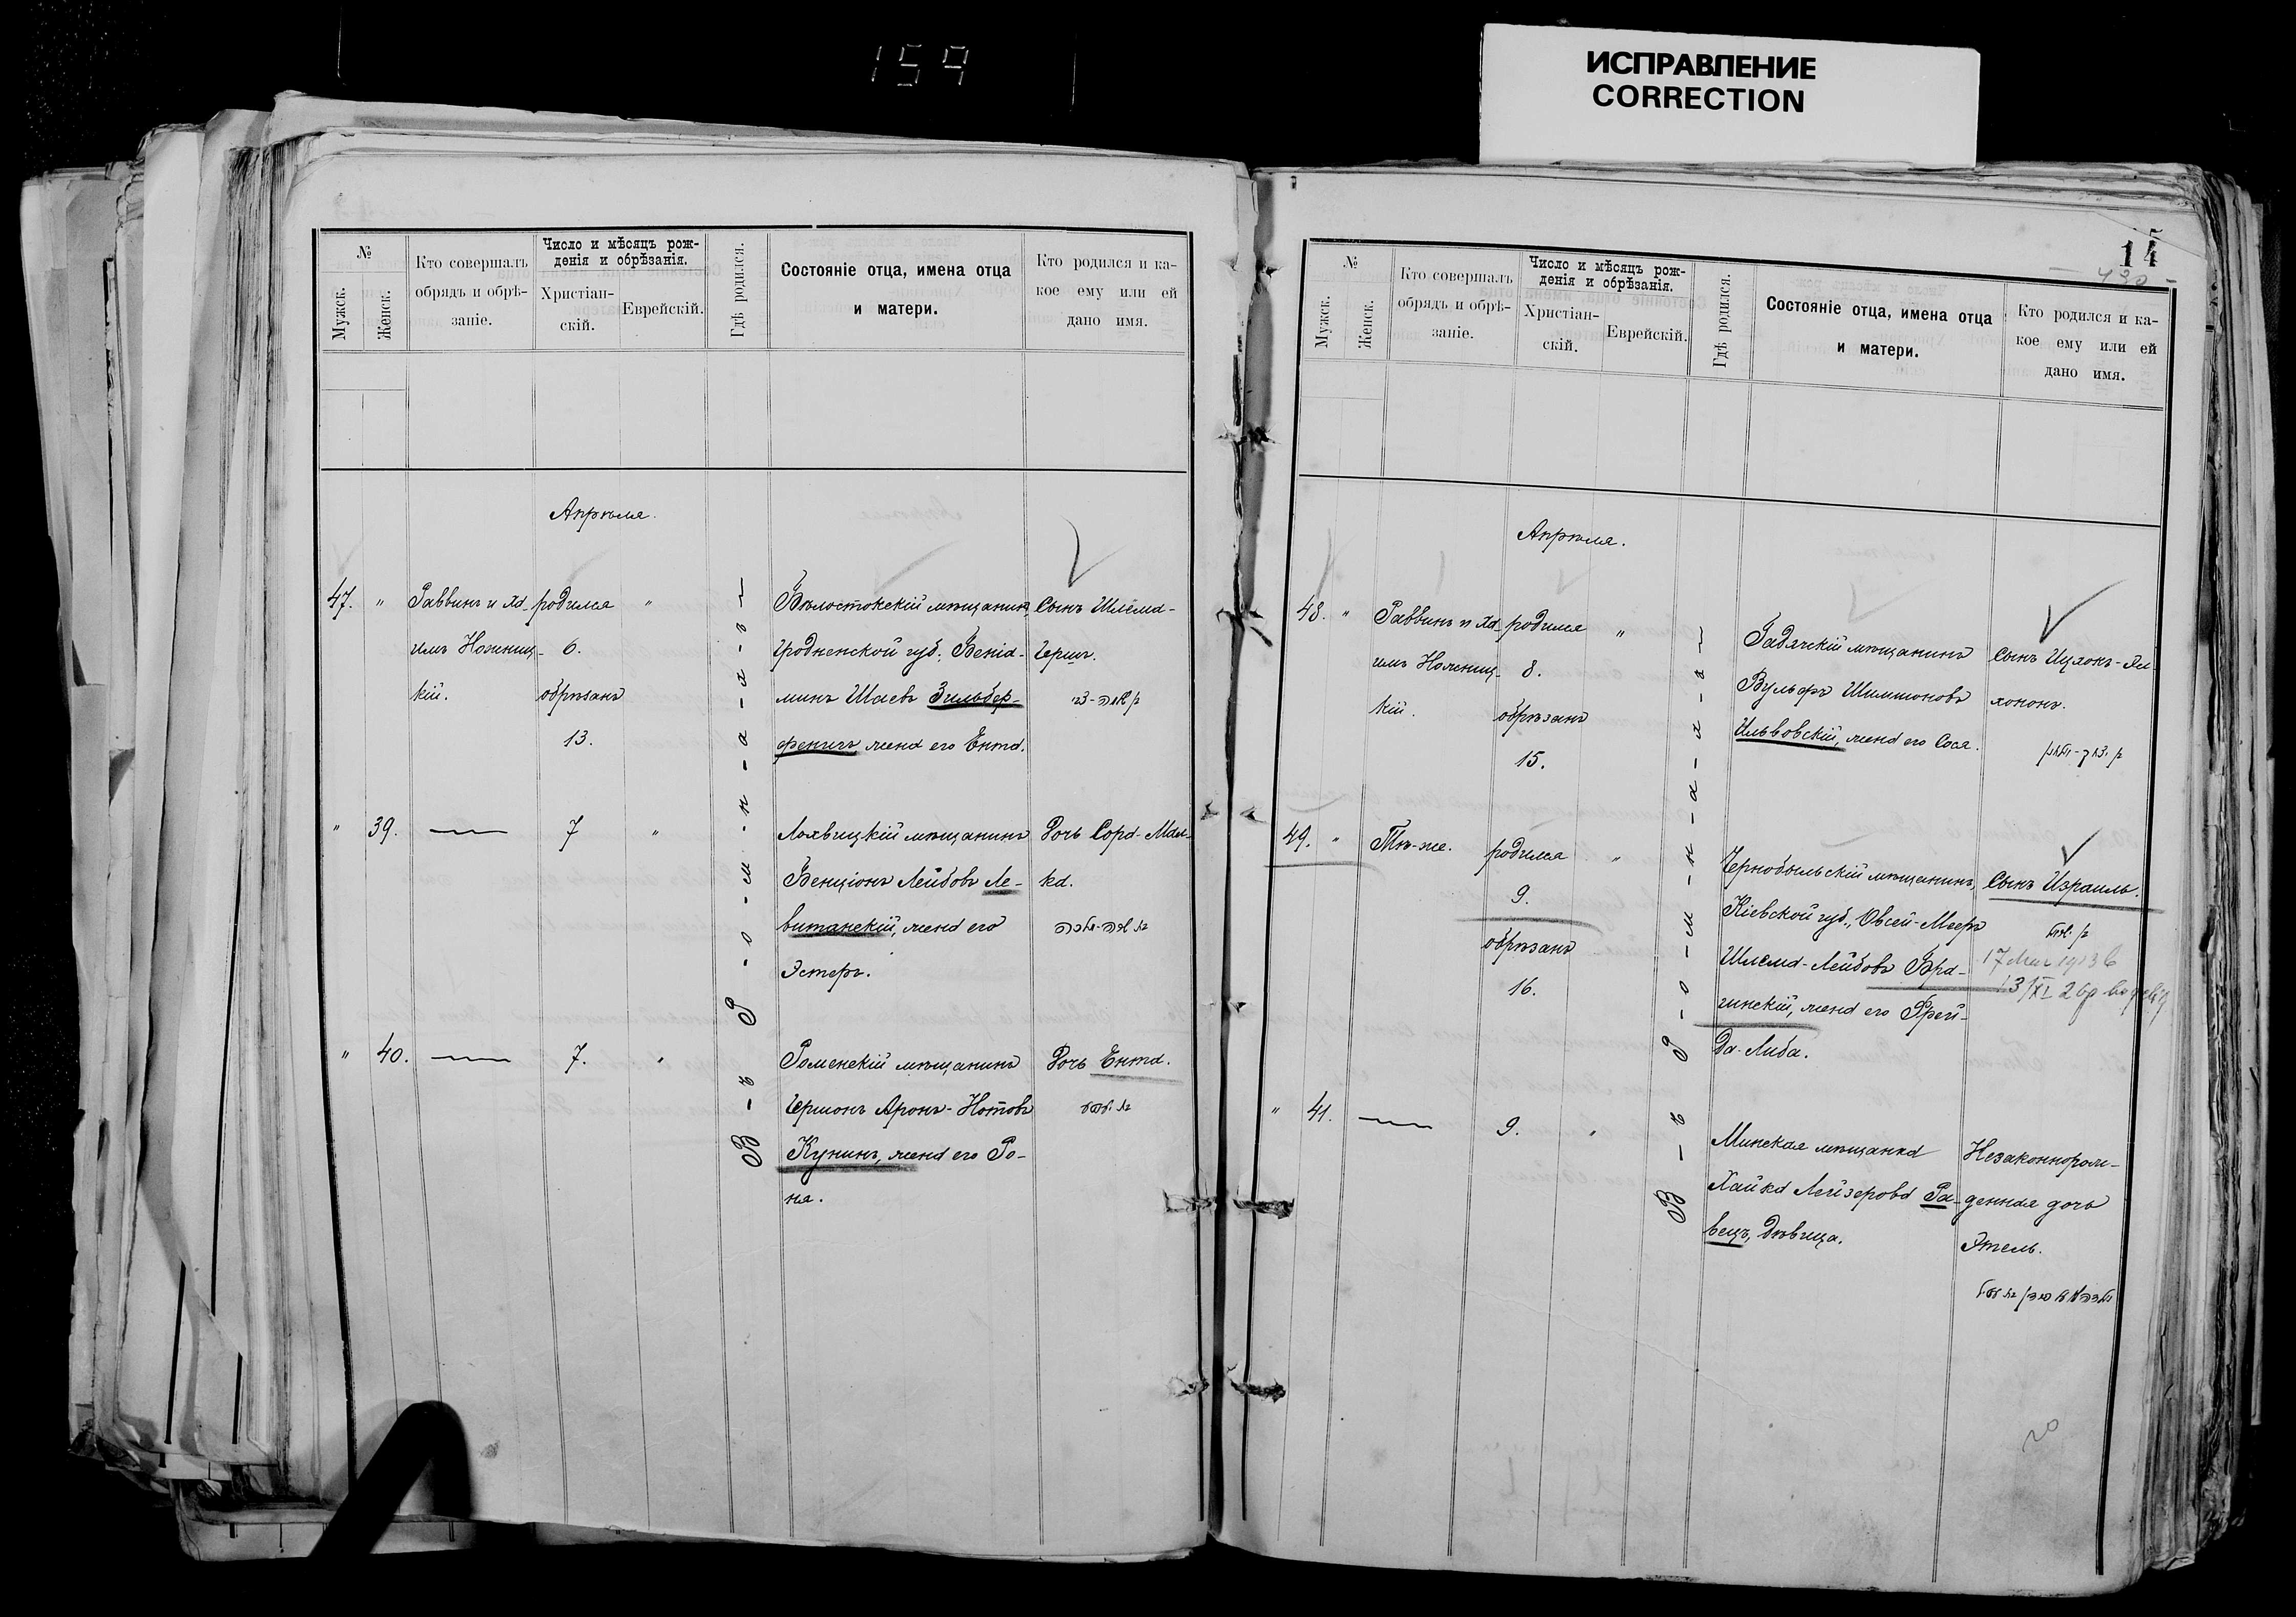 159
ИСПРАВЛЕНИЕ
CORRECTION
№
Мужск.
Женск.
Кто совершалъ
обрядъ и обрѣ-
заніе.
Число и мѣсяцъ рож-
денія и обрѣзанія.
Христіан-
скій.
Еврейскій.
Гдѣ родился.
Состояніе отца, имена отца
и матери.
Кто родился и ка-
кое ему или ей
дано имя.
Апрѣля.
47. " Раввинъ и Ха-
имъ Ножниц-
кій.
родился "
6.
обрѣзанъ
13.
В-ъ Р-о-м-н-а-х-ъ
Бѣлостокскій мѣщанинъ,
Гродненской губ., Беніа-
минъ Шаевъ Зильбер-
фенигъ, жена его Ента.
Сынъ Шлема-
Гершъ.
" 39. — 7 "
Лохвицкій мѣщанинъ
Бенціонъ Лейбовъ Ле-
витанскій, жена его
Эстеръ.
Дочь Сора-Мал-
ка.
" 40. — 7. "
Роменскій мѣщанинъ
Гершонъ Аронъ-Нотовъ
Кунинъ, жена его Ро-
ня.
Дочь Ента.
14
№
Мужск.
Женск.
Кто совершалъ
обрядъ и обрѣ-
заніе.
Число и мѣсяцъ рож-
денія и обрѣзанія.
Христіан-
скій.
Еврейскій.
Гдѣ родился.
Состояніе отца, имена отца
и матери.
Кто родился и ка-
кое ему или ей
дано имя.
Апрѣля.
48. " Раввинъ и Ха-
имъ Ножниц-
кій.
родился "
8.
обрѣзанъ
15.
В-ъ Р-о-м-н-а-х-ъ
Гадячскій мѣщанинъ
Вульфъ Шимшоновъ
Ильвовскій, жена его Сося.
Сынъ Ицхокъ-
хононъ.
49. " Тѣ-же.
родился "
9.
обрѣзанъ
16.
Чернобыльскій мѣщанинъ,
Кіевской губ., Овсей-Мееръ
Шлема-Лейбовъ Бра-
гинскій, жена его Фрей-
да-Либа.
Сынъ Израиль.
" 41. — 9. "
Минская мѣщанка
Хайка Лейзерова Ра-
вецъ, дѣвица.
Незаконнорож-
денная дочь
Этель.
20